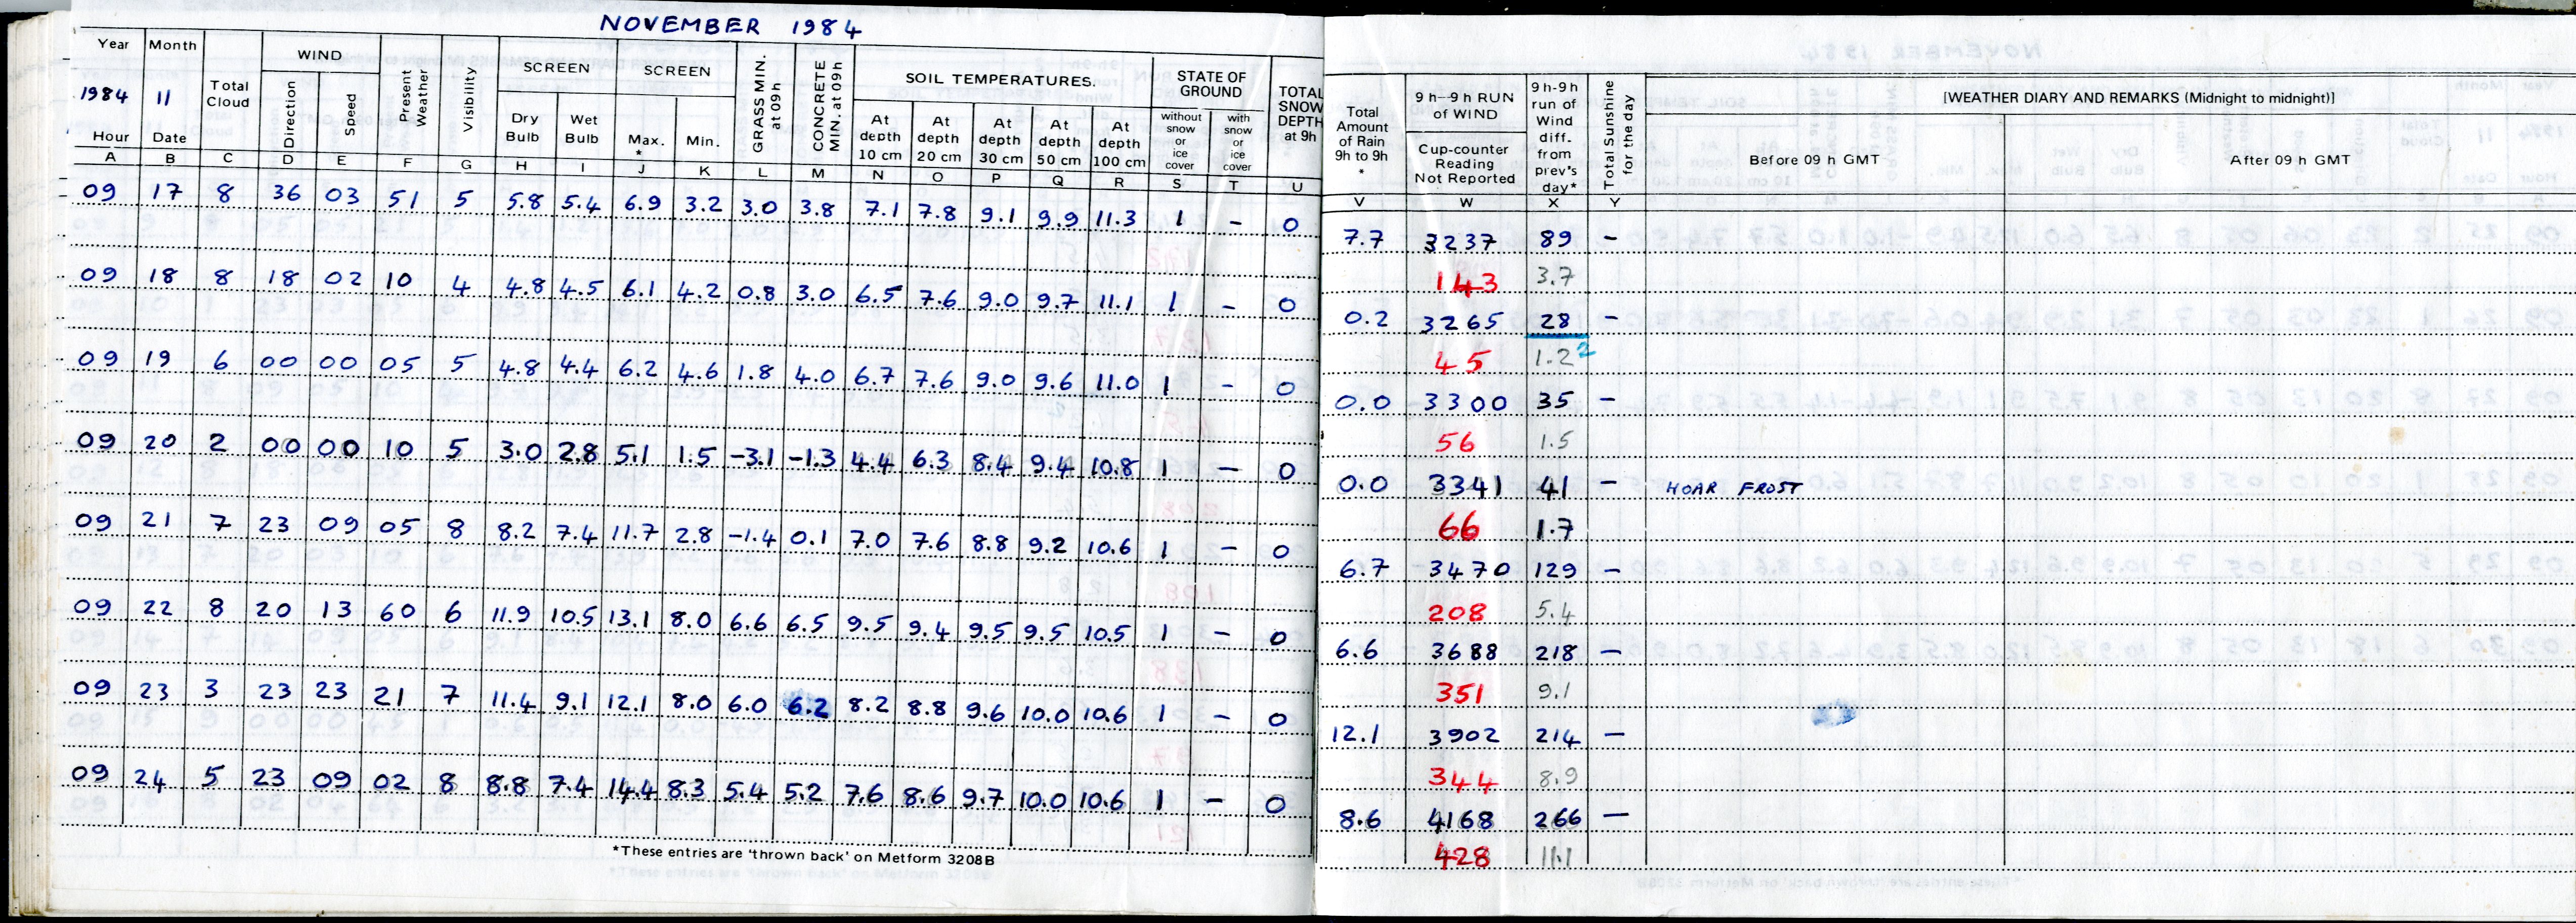 NOVEMBER 1984
Year Month Total Cloud WIND Present Weather Visibility SCREEN SCREEN GRASS MIN. at 09h CONCRETE MIN. at 09h SOIL TEMPERATURES. STATE OF GROUND TOTAL SNOW DEPTH at 9h Total Amount of Rain 9h to 9h * 9 h-9 h RUN of WIND 9h-9h run of Wind diff. from prev's day* Total Sunshine for the day [WEATHER DIARY AND REMARKS (Midnight to midnight)]
1984 11
Hour Date Direction Speed Dry Bulb Wet Bulb Max. * Min. At depth 10 cm At depth 20 cm At depth 30 cm At depth 50 cm At depth 100 cm without snow or ice cover with snow or ice cover Cup-counter Reading Not Reported Before 09 h GMT After 09 h GMT
A B C D E F G H I J K L M N O P Q R S T U V W X Y
09 17 8 36 03 51 5 5.8 5.4 6.9 3.2 3.0 3.8 7.1 7.8 9.1 9.9 11.3 1 - 0 7.7 3237 89 -
143 3.7
09 18 8 18 02 10 4 4.8 4.5 6.1 4.2 0.8 3.0 6.5 7.6 9.0 9.7 11.1 1 - 0 0.2 3265 28 -
45 1.2 2
09 19 6 00 00 05 5 4.8 4.4 6.2 4.6 1.8 4.0 6.7 7.6 9.0 9.6 11.0 1 - 0 0.0 3300 35 -
56 1.5
09 20 2 00 00 10 5 3.0 2.8 5.1 1.5 -3.1 -1.3 4.4 6.3 8.4 9.4 10.8 1 - 0 0.0 3341 41 - HOAR FROST
66 1.7
09 21 7 23 09 05 8 8.2 7.4 11.7 2.8 -1.4 0.1 7.0 7.6 8.8 9.2 10.6 1 - 0 6.7 3470 129 -
208 5.4
09 22 8 20 13 60 6 11.9 10.5 13.1 8.0 6.6 6.5 9.5 9.4 9.5 9.5 10.5 1 - 0 6.6 3688 218 -
351 9.1
09 23 3 23 23 21 7 11.4 9.1 12.1 8.0 6.0 6.2 8.2 8.8 9.6 10.0 10.6 1 - 0 12.1 3902 214 -
344 8.9
09 24 5 23 09 02 8 8.8 7.4 14.4 8.3 5.4 5.2 7.6 8.6 9.7 10.0 10.6 1 - 0 8.6 4168 266 -
428 11.1
*These entries are 'thrown back' on Metform 3208B